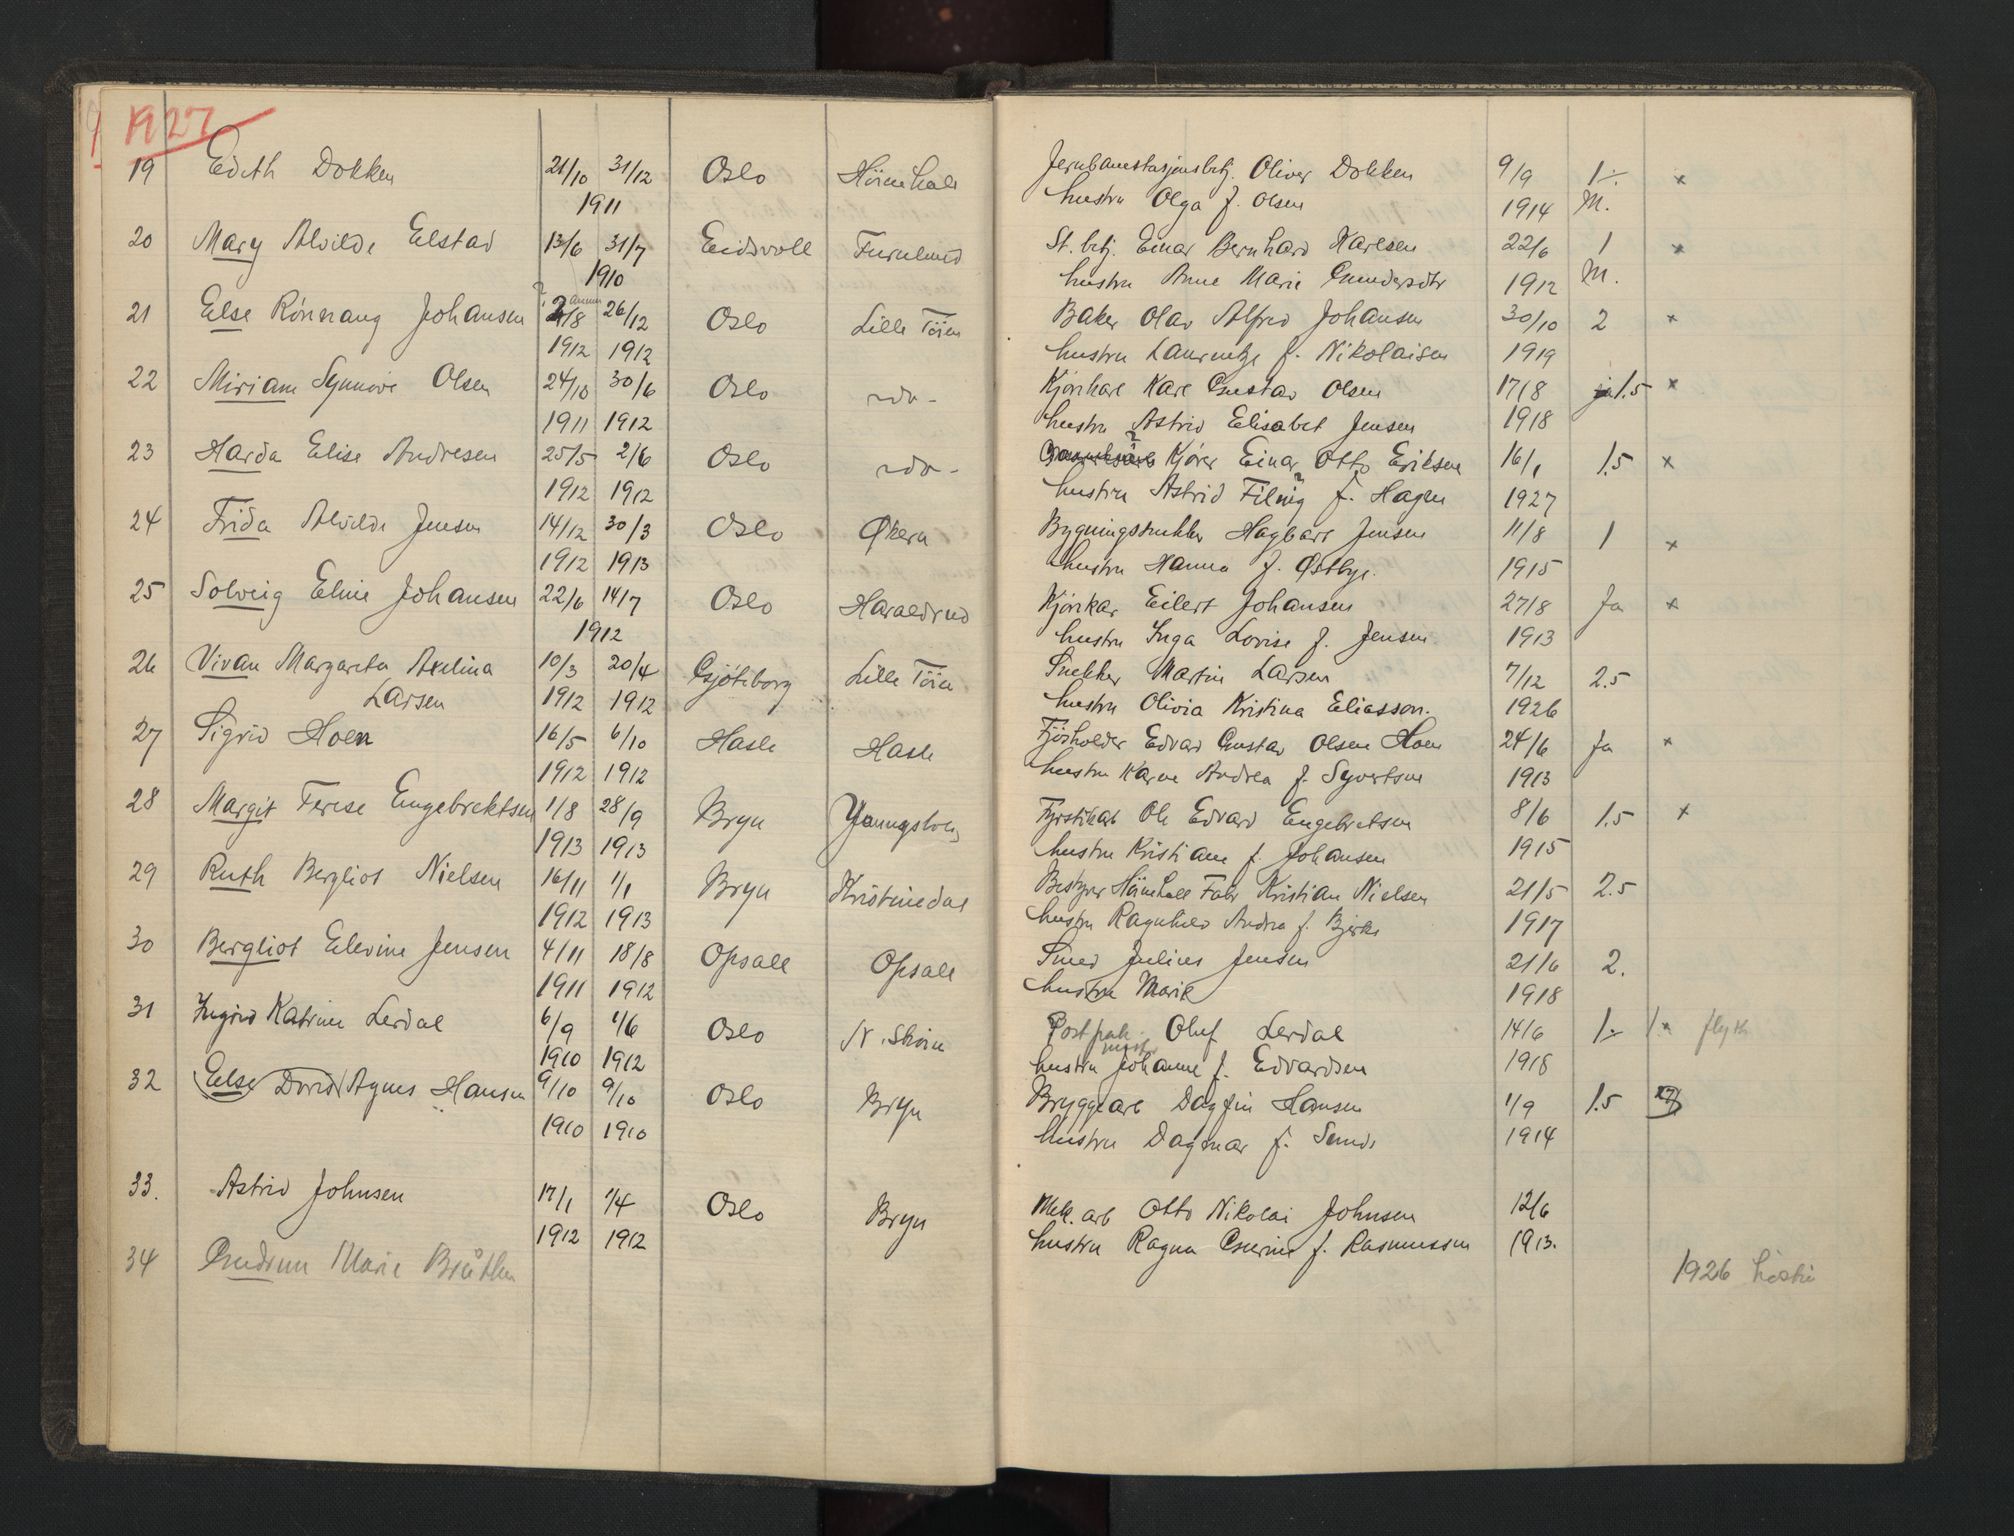 1927
19 Edith Dokken 21/10 31/12 Oslo Höienhall Jernbanestasjonsbetj. Oliver Dokken 9/9 1 x
1911 hustru Olga f. Olsen 1914 M.
20 Mary Alvilde Elstad 13/6 31/7 Eidsvoll Furulund St. betj. Einar Bernhard Karlsen 22/6 1 x
1910 hustru Anne Marie Gundersdtr 1912 M.
21 Else Rönnaug Johansen /8 26/12 Oslo Lille Töien Baker Olav Alfred Johansen 30/10 2 x
1912 1912 hustru Laurentze f. Nikolaisen 1919
22 Miriam Synnöve Olsen 24/10 30/6 Oslo -do- Kjörekar Karl Gustav Olsen 17/8 1.5 x
1911 1912 hustru Astrid Elisabet Jensen 1918
23 Harda Elise Andresen 25/5 2/6 Oslo -do- Kjörer Einar Otto Eriksen 16/1 1.5 x
1912 1912 hustru Astrid f. Hagen 1927
24 Frida Alvilde Jensen 14/12 30/3 Oslo Økern Bygningssnekker Hagbart Jensen 11/8 1 x
1912 1913 hustru Hanna f. Østbye. 1915
25 Solveig Eline Johansen 22/6 14/7 Oslo Haraldrud Kjörekar Eilert Johansen 27/8 Ja x
1912 hustru Inga Lovise f. Jensen 1913
26 Vivan Margareta Axelina 10/3 20/4 Gjöteborg Lille Töien Snekker Martin Larsen 7/12 2.5
Larsen 1912 1912 hustru Olivia Kristina Eliasson. 1926
27 Sigrid Hoen 16/5 6/10 Hasle Hasle Fjösholder Edvard Gustav Olsen Hoen 24/6 Ja x
1912 1912 hustru Karen Andrea f. Syvertsen 1913
28 Margit Terese Engebrektsen 1/8 28/9 Bryn Youngslokk. Fyrstikarb Ole Edvard Engebretsen 8/6 1.5 x
1913 1913 hustru Kristiane f. Johansen 1915
29 Ruth Bergliot Nielsen 16/11 1/1 Bryn Kristinedal Bestyrer Höienhall Fabr Kristian Nielsen 21/5 2.5
1912 1913 hustru Ragnhild Andrea f. Bjerke 1917
30 Bergliot Elevine Jensen 4/11 18/8 Opsall Opsall Smed Julius Jensen 21/6 2.
1911 1912 hustru Marie 1918
31 Ingrid Katrine Lerdal 6/9 1/6 Oslo N. Skøien Postpak Oluf Lerdal 14/6 1 flytt
1910 1912 mest. hustru Johanne f. Edvardsen 1918
32 (Else Dorid) Agnes Hansen 9/10 9/10 Oslo Bryn Bryggearb Dagfin Hansen 1/9 1.5
1910 1910 hustru Dagmar f. Sunde 1914
33. Astrid Johnsen 17/1 1/4 Oslo Bryn Mek. arb Otto Nikolai Johnsen 12/6
1912 1912 hustru Ragna Gurine f. Rasmussen 1913.
34 Gudrun Marie Bråthen 1926